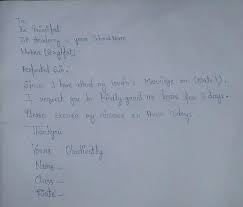 To
The Principal
Academy - your School Name
Respected Sir,
Since I have attend my cousin's Marriage on (Date).
I request you to kindly grant me leave for 3 days.
Please Excuse my absence on these 3 days.
Thankyou
Yours Obediently
Name -
Class -
Date -